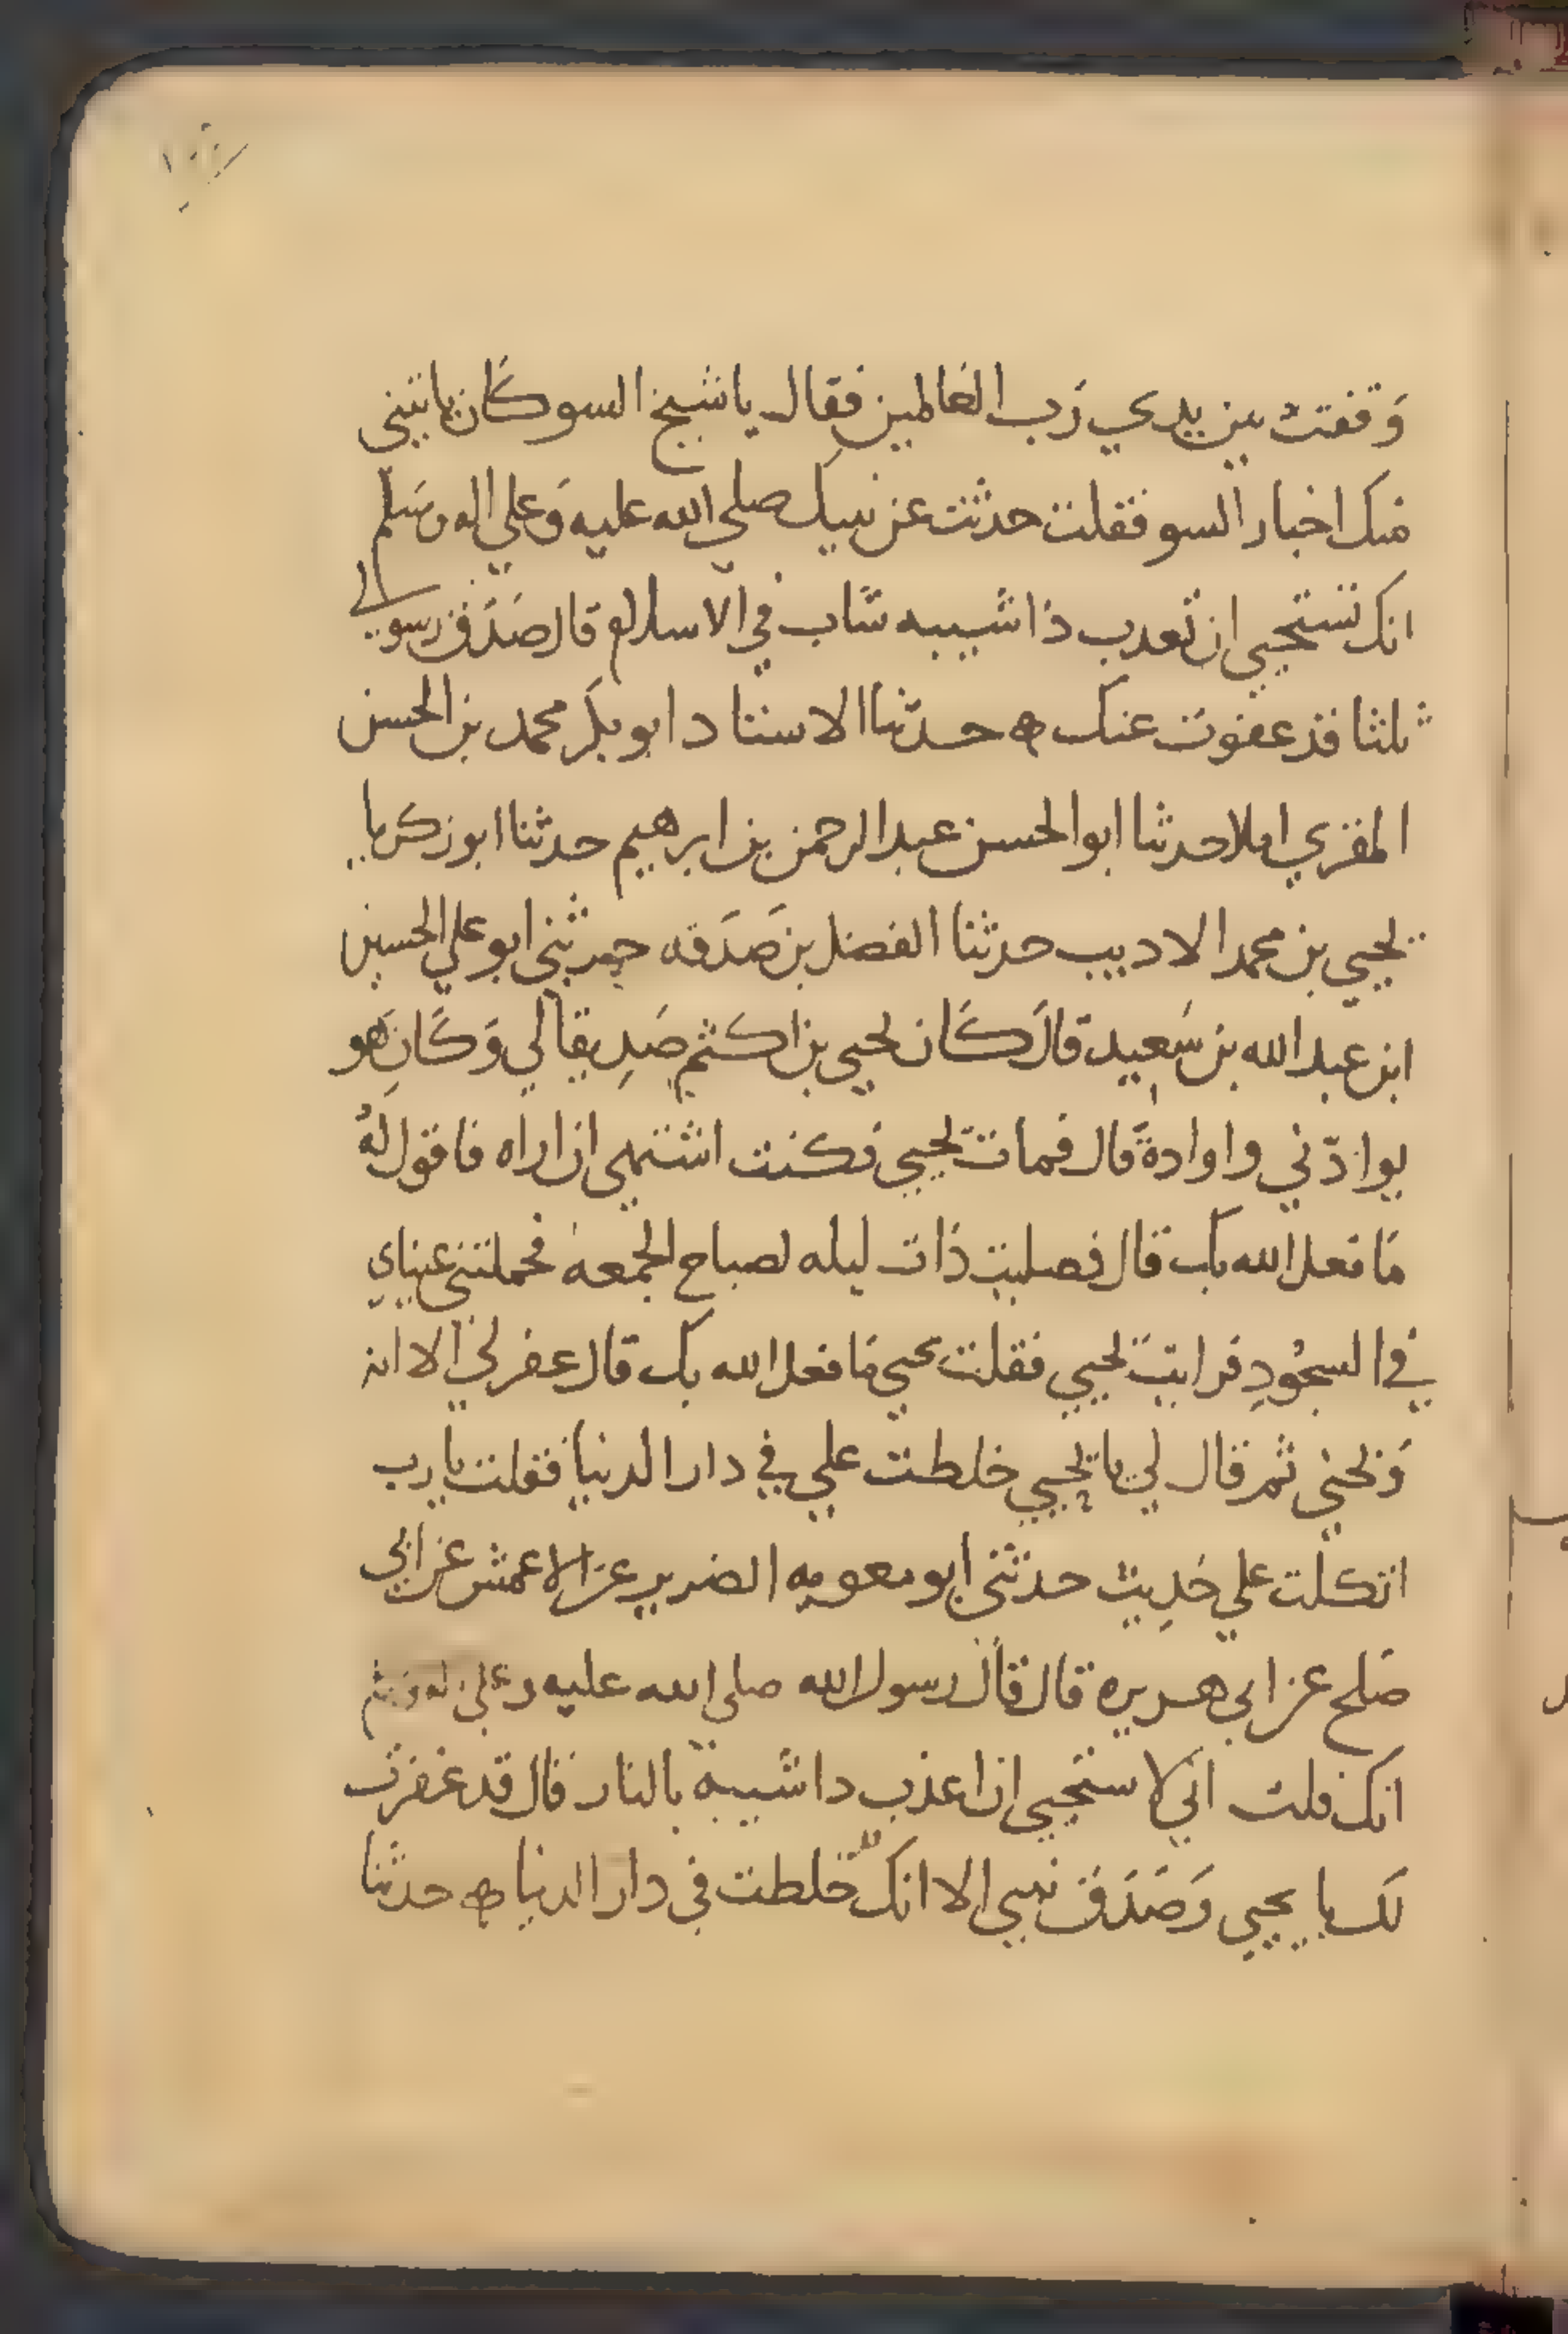 وَقفت بين يدي رَب العَالمين فقال يا شيخ السو كَان ياتيني
منك اخبار السو فقلت حدثت عن نبيك صلي الله عليه وَعلي اله وسَلم
انك تستحيي ان تعذب ذا شيبه شاب في الاسلام قال صَدَق رسولي
ثلثا قد عفوت عنك ه حدثنا الاستاد ابو بكر محمد بن الحسن
المقري املا حدثنا ابو الحسن عبد الرحمن بن ابرهيم حدثنا ابو زكريا
يحيي بن محمد الاديب حدثنا الفضل بن صَدَقه حدثني ابو علي الحسين
ابن عبد الله بن سَعيد قالَ كَان يحيي بن اكثم صَدِيقا لي وَكَان هو
يوادّني واوادهُ قال فمات يحيي فكنت اشتهي ان اراه فاقول لهُ
مَا فعل الله بك قال فصليت ذات ليله لصباح الجمعه فحملتني عيناي
في السجُودِ فرايت يحيي فقلت يحيي مَا فعل الله بك قال غفر لي الا انه
وَبخني ثم قال لي يا يحيي خلطت علي في دار الدنيا فقلت يا رب
اتكلت علي حَدِيث حدثني ابو معويه الضرير عن الاعمش عن ابي
صَلح عن ابي هريره قال قال رسول الله صلي الله عليه وعلي اله وسَلم
انك قلت اني لاستحيي ان اعذب دا شيبة بالنار قال قد غفرت
لَك يا يحيي وَصَدَق نبيي الا انك خلطت في دار الدنيا ه حدثنا